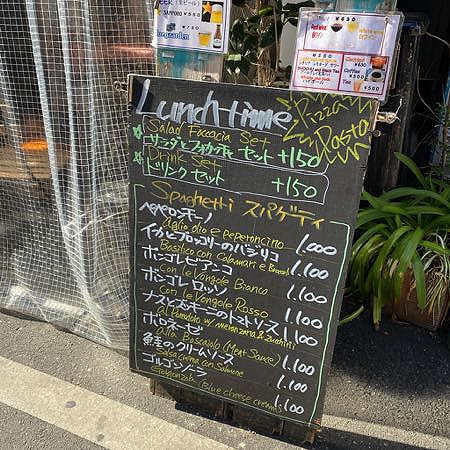 BEER
SAPPORO
¥580
¥650
¥500
Lunch time
Pizza
Pasta
☆ Salad Focaccia Set
☆ サラダとフォカッチャセット +150
Drink Set
ドリンク セット +150
Spaghetti スパゲティ
ペペロンチーノ
aglio olio e peperoncino 1.000
イカとブロッコリーのバジリコ
Basilico con Calamari e Broccoli 1.100
ボンゴレ ビアンコ
con le Vongole Bianco 1.100
ボンゴレ ロッソ
con le Vongole Rosso 1.100
ナスとズッキーニのトマトソース
al Pomodoro w/ melanzana & Zucchini 1.100
ボロネーゼ
alla Boscaiolo (Meat Sauce) 1.100
鮭のクリームソース
Salsa crema con Salmone 1.100
ゴルゴンゾーラ
Gorgonzola (Blue cheese cream) 1.100